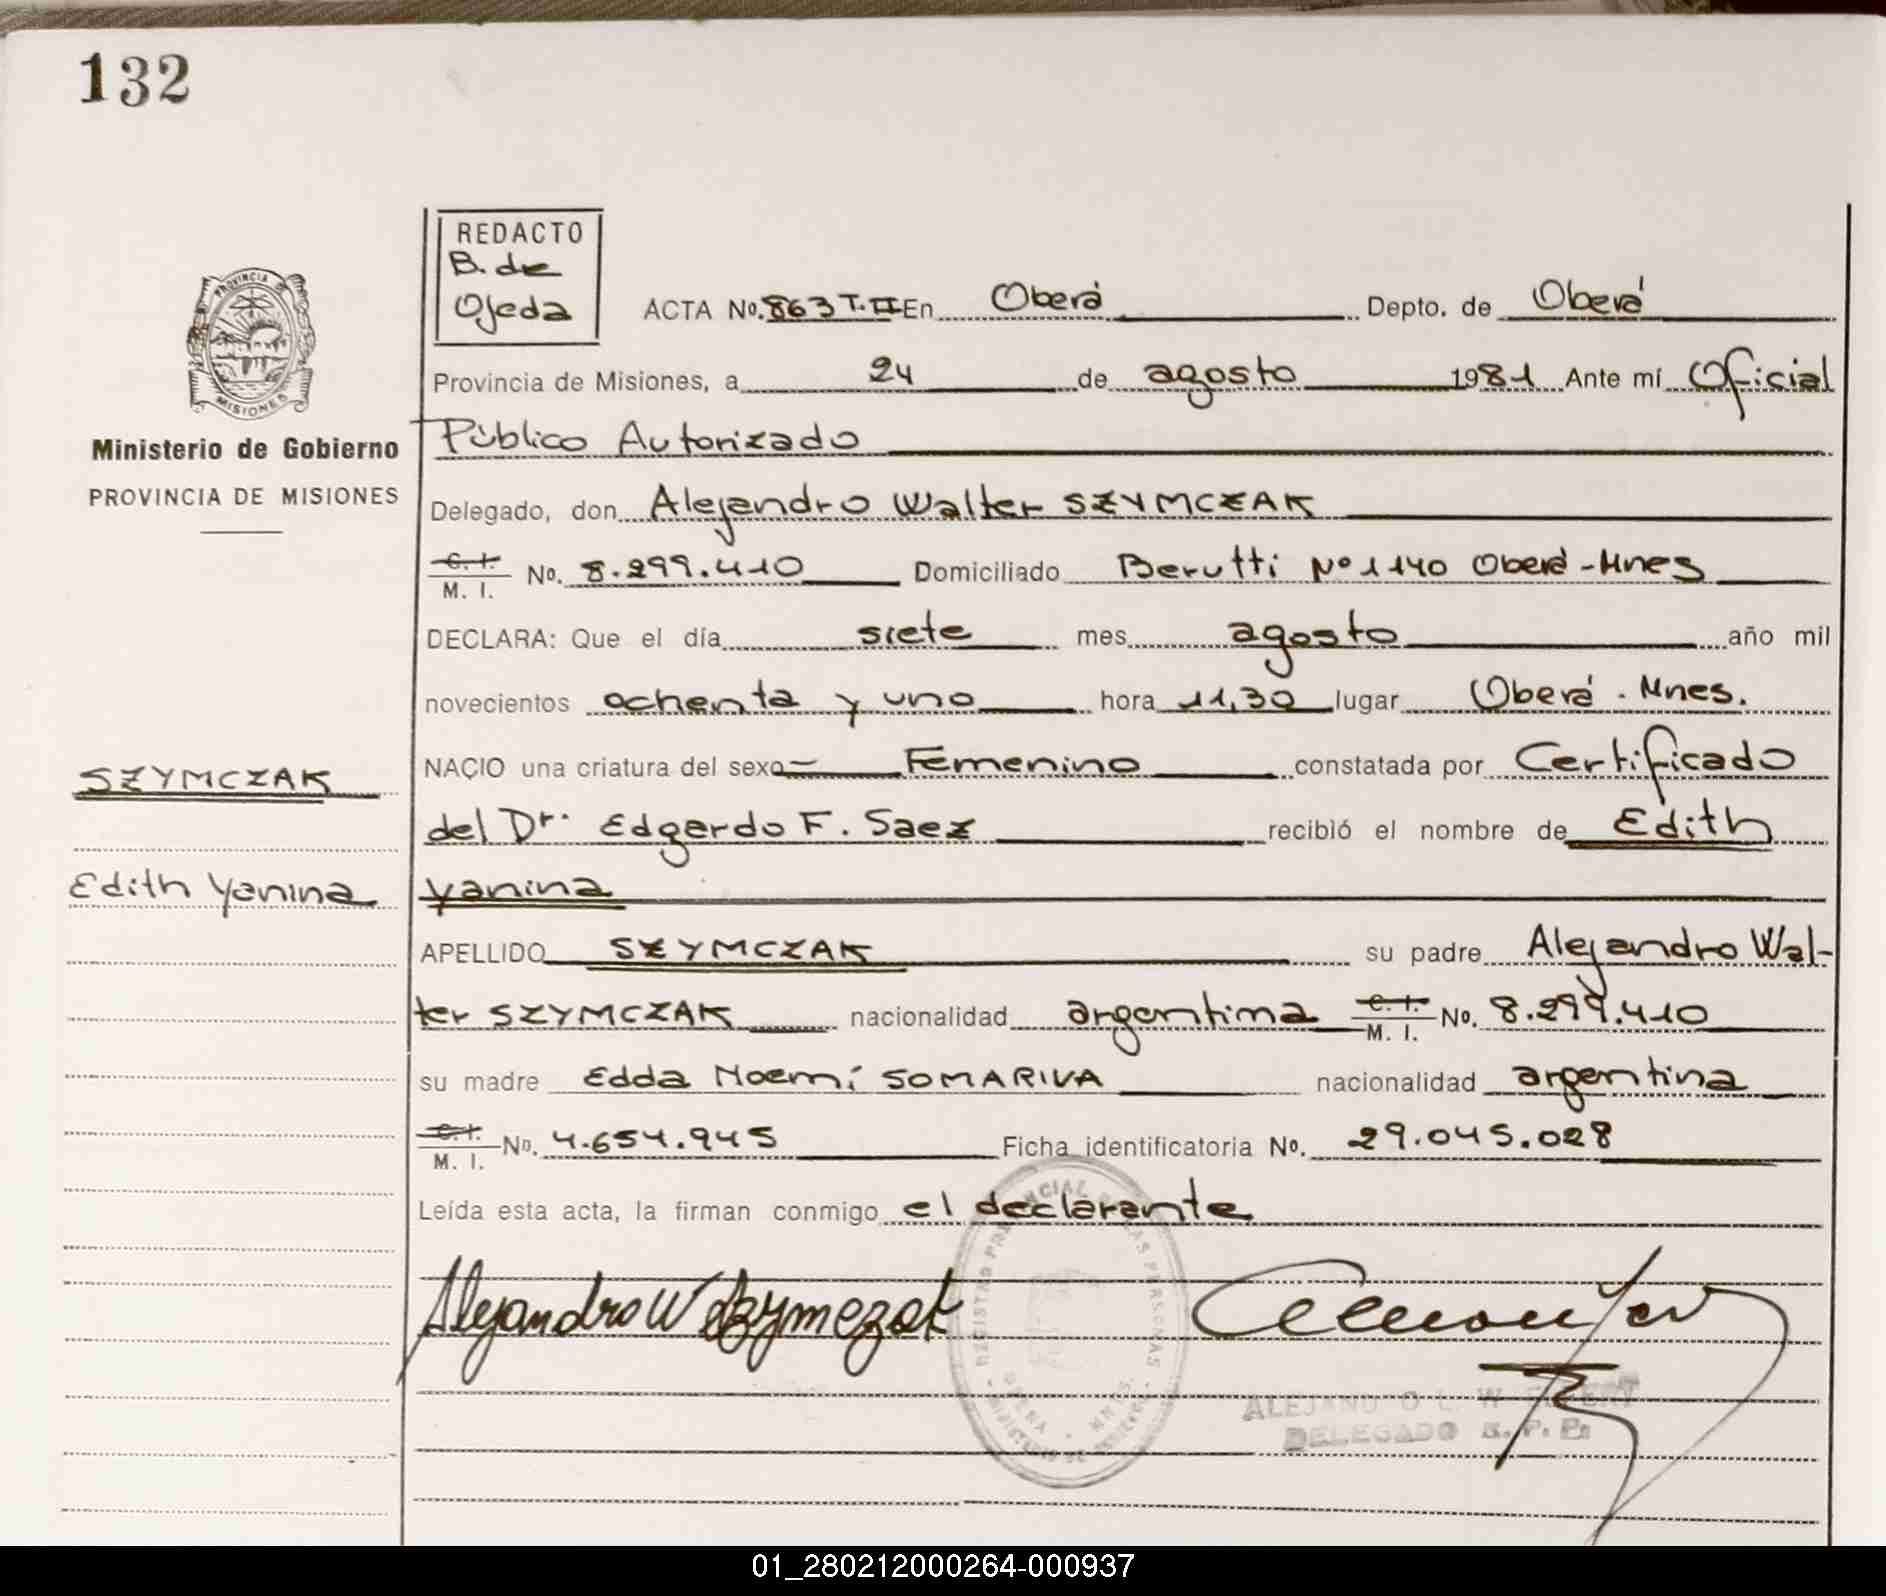 132
REDACTO
B. de
Ojeda
ACTA No. 863 T. II En Oberá Depto. de Oberá
PROVINCIA DE
MISIONES
Provincia de Misiones, a 24 de agosto 1981 Ante mí Oficial
Ministerio de Gobierno
PROVINCIA DE MISIONES
Público Autorizado
Delegado, don Alejandro Walter SZYMCZAK
C. I.
M. I. No. 8.299.410 Domiciliado Berutti Nº 1140 Oberá - Mnes
DECLARA: Que el día siete mes agosto año mil
novecientos ochenta y uno hora 11,30 lugar Oberá - Mnes.
SZYMCZAK
NACIO una criatura del sexo Femenino constatada por Certificado
del Dr. Edgardo F. Saez recibió el nombre de Edith
Edith Yanina
Yanina
APELLIDO SZYMCZAK su padre Alejandro Wal-
ter SZYMCZAK nacionalidad argentina C. I. M. I. No. 8.299.410
su madre Edda Noemí SOMARIVA nacionalidad argentina
C. I.
M. I. No. 4.654.945 Ficha identificatoria No. 29.045.028
Leída esta acta, la firman conmigo el declarante
Alejandro W Szymczak
REGISTRO PROVINCIAL DE LAS PERSONAS
DELEGADO R. P. P.
01_280212000264-000937